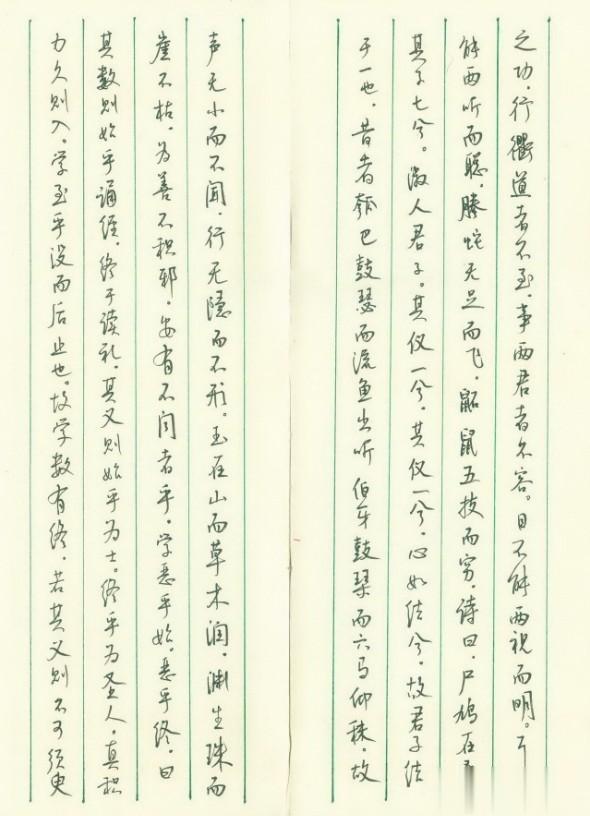 之功。行衢道者不至，事两君者不容。目不能两视而明。
能两听而聪。螣蛇无足而飞，鼫鼠五技而穷。诗曰，尸鸠在
其子七兮。淑人君子。其仪一兮，其仪一兮，心如结兮。故君子结
于一也。昔者瓠巴鼓瑟而流鱼出听 伯牙鼓琴而六马仰秣。故
声无小而不闻，行无隐而不形。玉在山而草木润，渊生珠而
崖不枯。为善不积邪，安有不闻者乎。学恶乎始，恶乎终。曰
其数则始乎诵经，终于读礼，其义则始乎为士。终乎为圣人，真积
力久则入。学至乎没而后止也。故学数有终，若其义则不可须臾